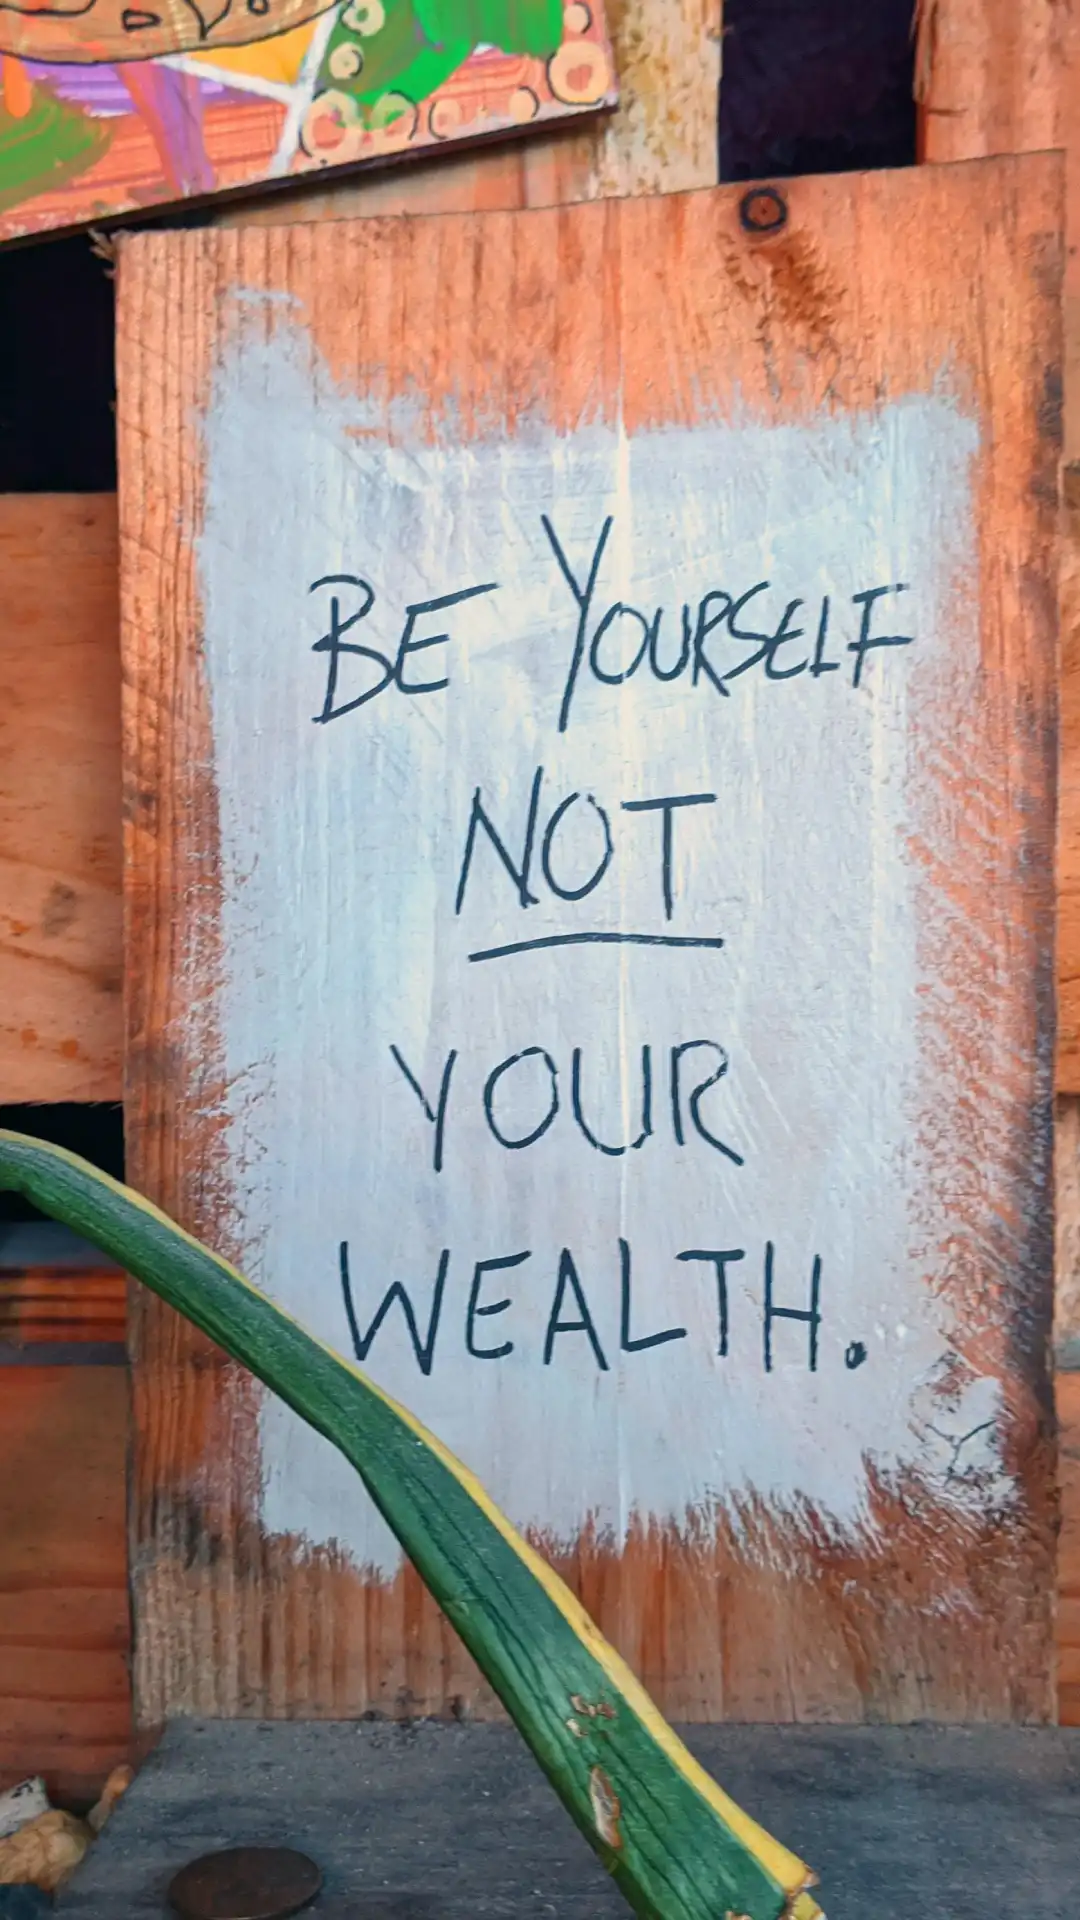 BE YOURSELF
NOT
YOUR
WEALTH.